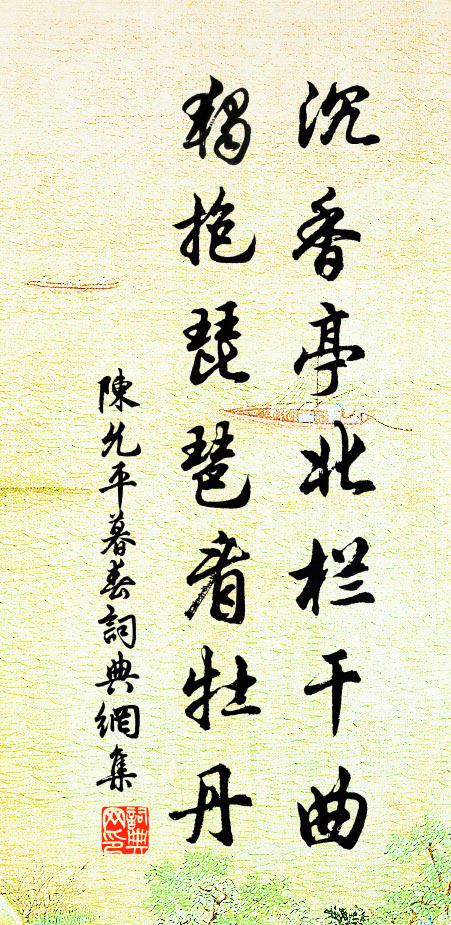 沉香亭北栏干曲
独抱琵琶看牡丹
陳允平暮春詞典網集
詞典网印